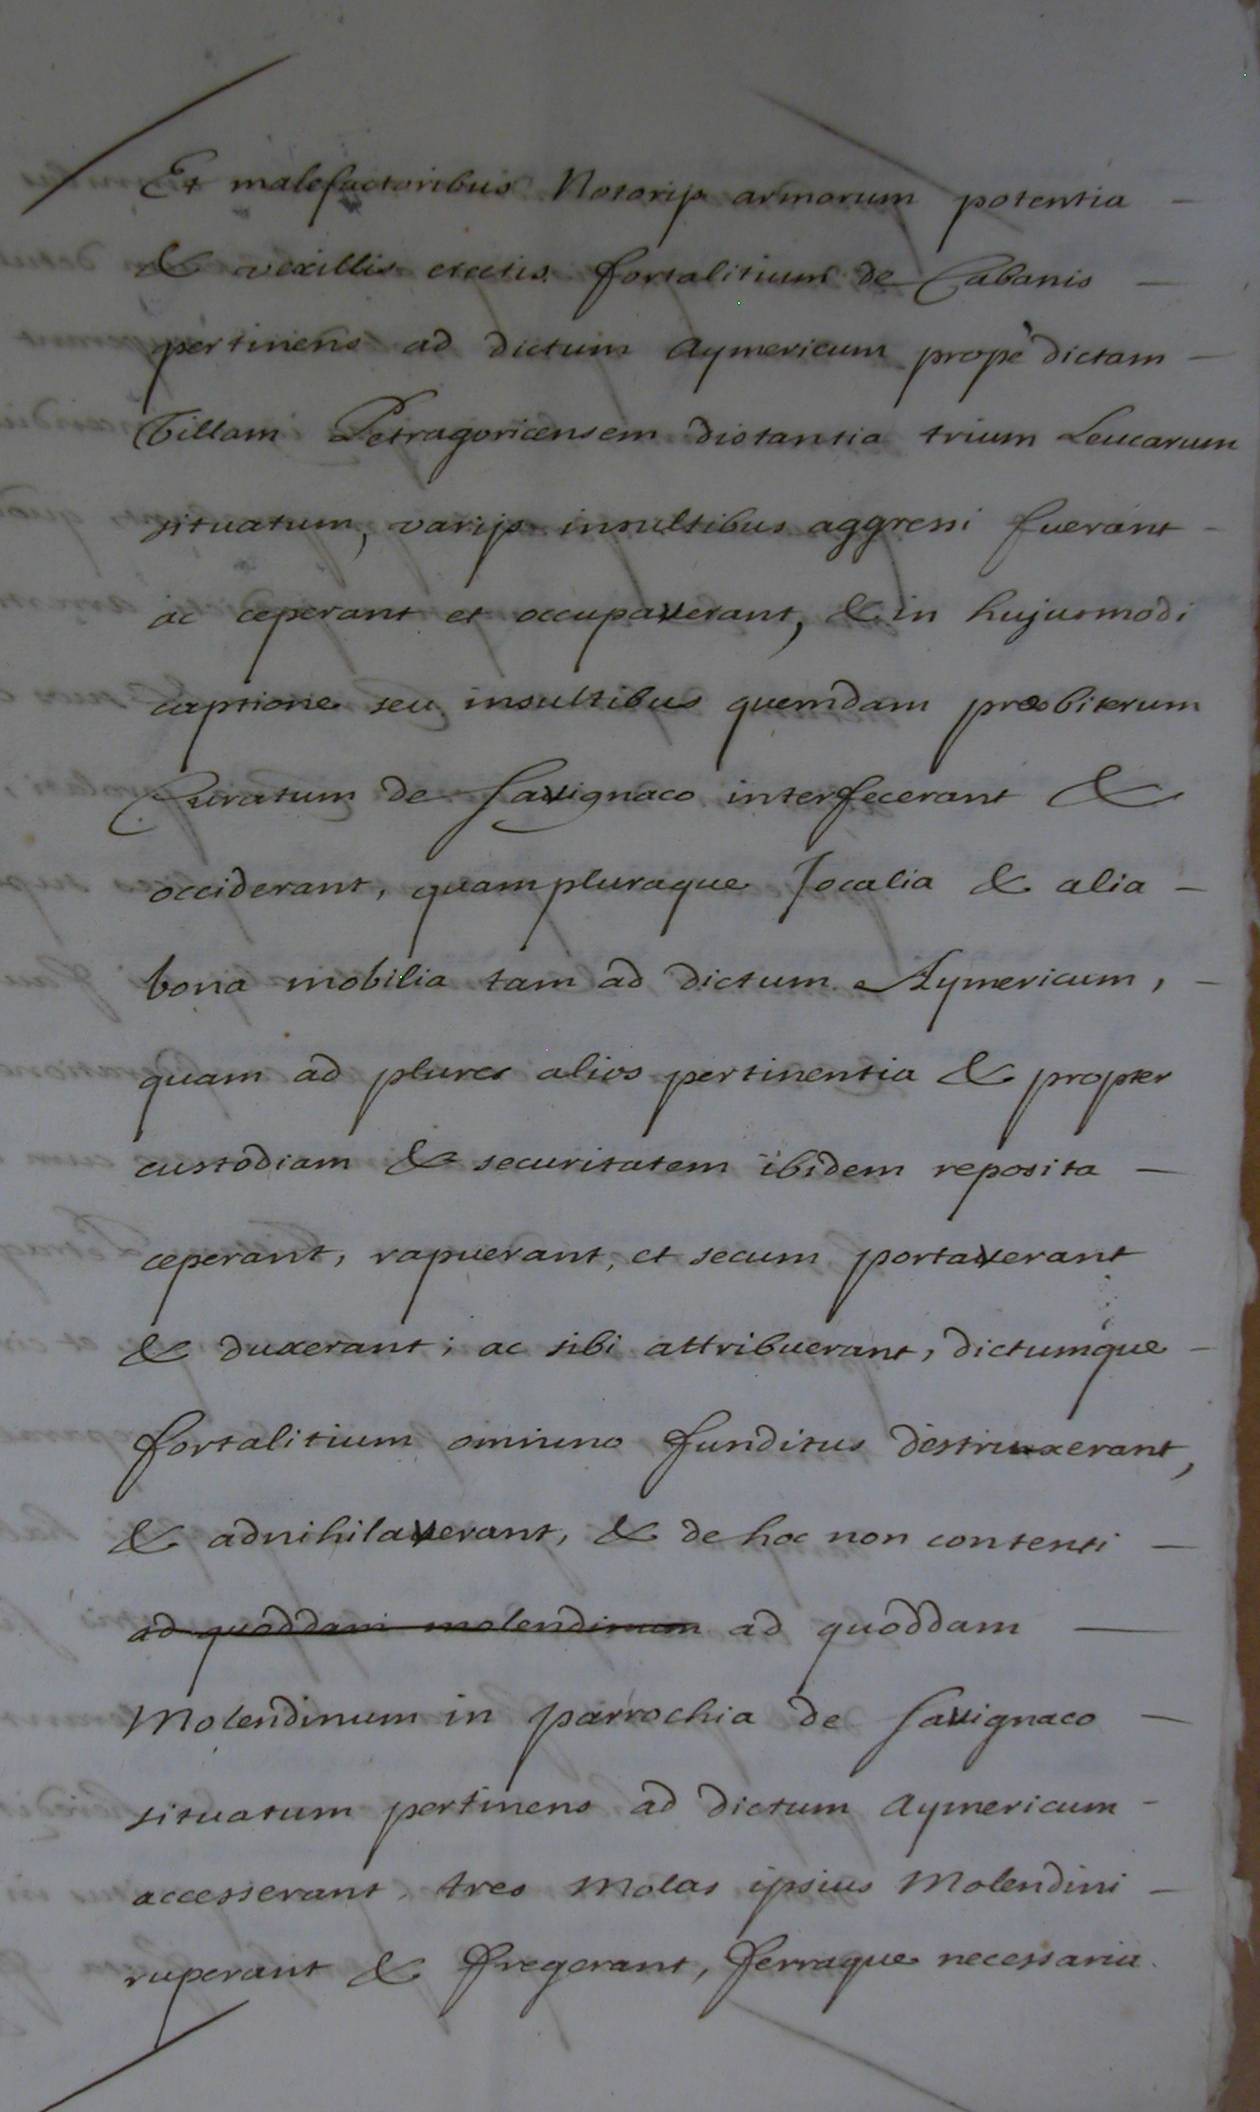 Et malefactoribus Notorijs armorum potentia —
& vexillis erectis fortalitium de Cabanis —
pertinens ad dictum Aymericum propè dictam —
Villam Petragoricensem distantia trium Leucarum
situatum, varijs insultibus aggressi fuerant -
ac ceperant et occupaverant, & in hujusmodi
captione seu insultibus quemdam presbiterum
Curatum de Savignaco interfecerant &
occiderant, quampluraque Jocalia & alia —
bona mobilia tam ad dictum Aymericum, —
quam ad plures alios pertinentia & propter
custodiam & securitatem ibidem reposita —
ceperant, rapuerant, et secum portaverant
& duxerant; ac sibi attribuerant, dictumque —
fortalitium omnino funditus destruxerant,
& adnihilaverant, & de hoc non contenti —
ad quoddam molendinum ad quoddam —
Molendinum in parrochia de Savignaco —
situatum pertinens ad dictum Aymericum -
accesserant, tres Molas ipsius Molendini —
ruperant & fregerant, ferraque necessaria